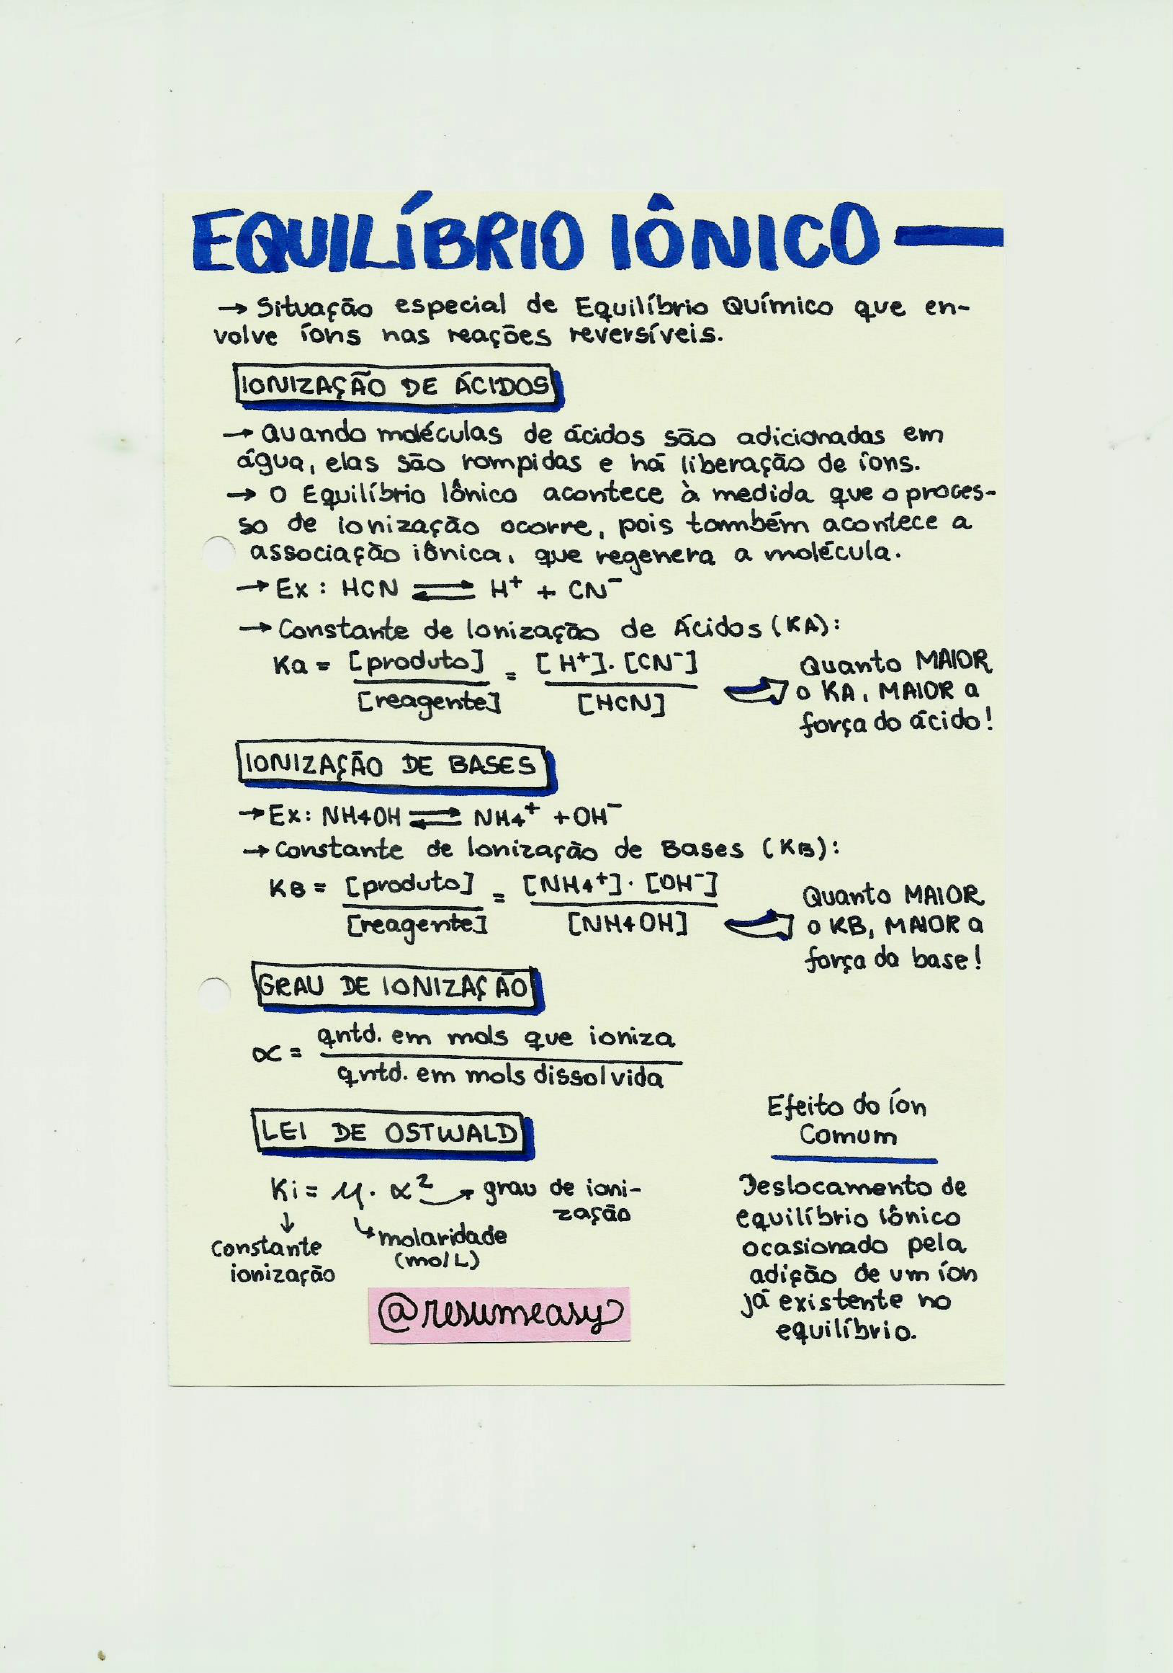 EQUILÍBRIO IÔNICO
→ Situação especial de Equilíbrio Químico que en-
volve íons nas reações reversíveis.
IONIZAÇÃO DE ÁCIDOS
→ Quando moléculas de ácidos são adicionadas em
água, elas são rompidas e há liberação de íons.
→ O Equilíbrio Iônico acontece à medida que o proces-
so de ionização ocorre, pois também acontece a
associação iônica, que regenera a molécula.
→ Ex: HCN ⇌ H⁺ + CN⁻
→ Constante de Ionização de Ácidos (KA):
Ka = [produto] / [reagente] = [H⁺]. [CN⁻] / [HCN]
Quanto MAIOR
o KA, MAIOR a
força do ácido!
IONIZAÇÃO DE BASES
→ Ex: NH4OH ⇌ NH4⁺ + OH⁻
→ Constante de Ionização de Bases (KB):
KB = [produto] / [reagente] = [NH4⁺]. [OH⁻] / [NH4OH]
Quanto MAIOR
o KB, MAIOR a
força da base!
GRAU DE IONIZAÇÃO
α = qntd. em mols que ioniza / qntd. em mols dissolvida
LEI DE OSTWALD
Ki = M. α² → grau de ioni-
zação
↓ Constante
ionização
↳ molaridade
(mol/L)
@resumeasy
Efeito do íon
Comum
Deslocamento de
equilíbrio iônico
ocasionado pela
adição de um íon
já existente no
equilíbrio.